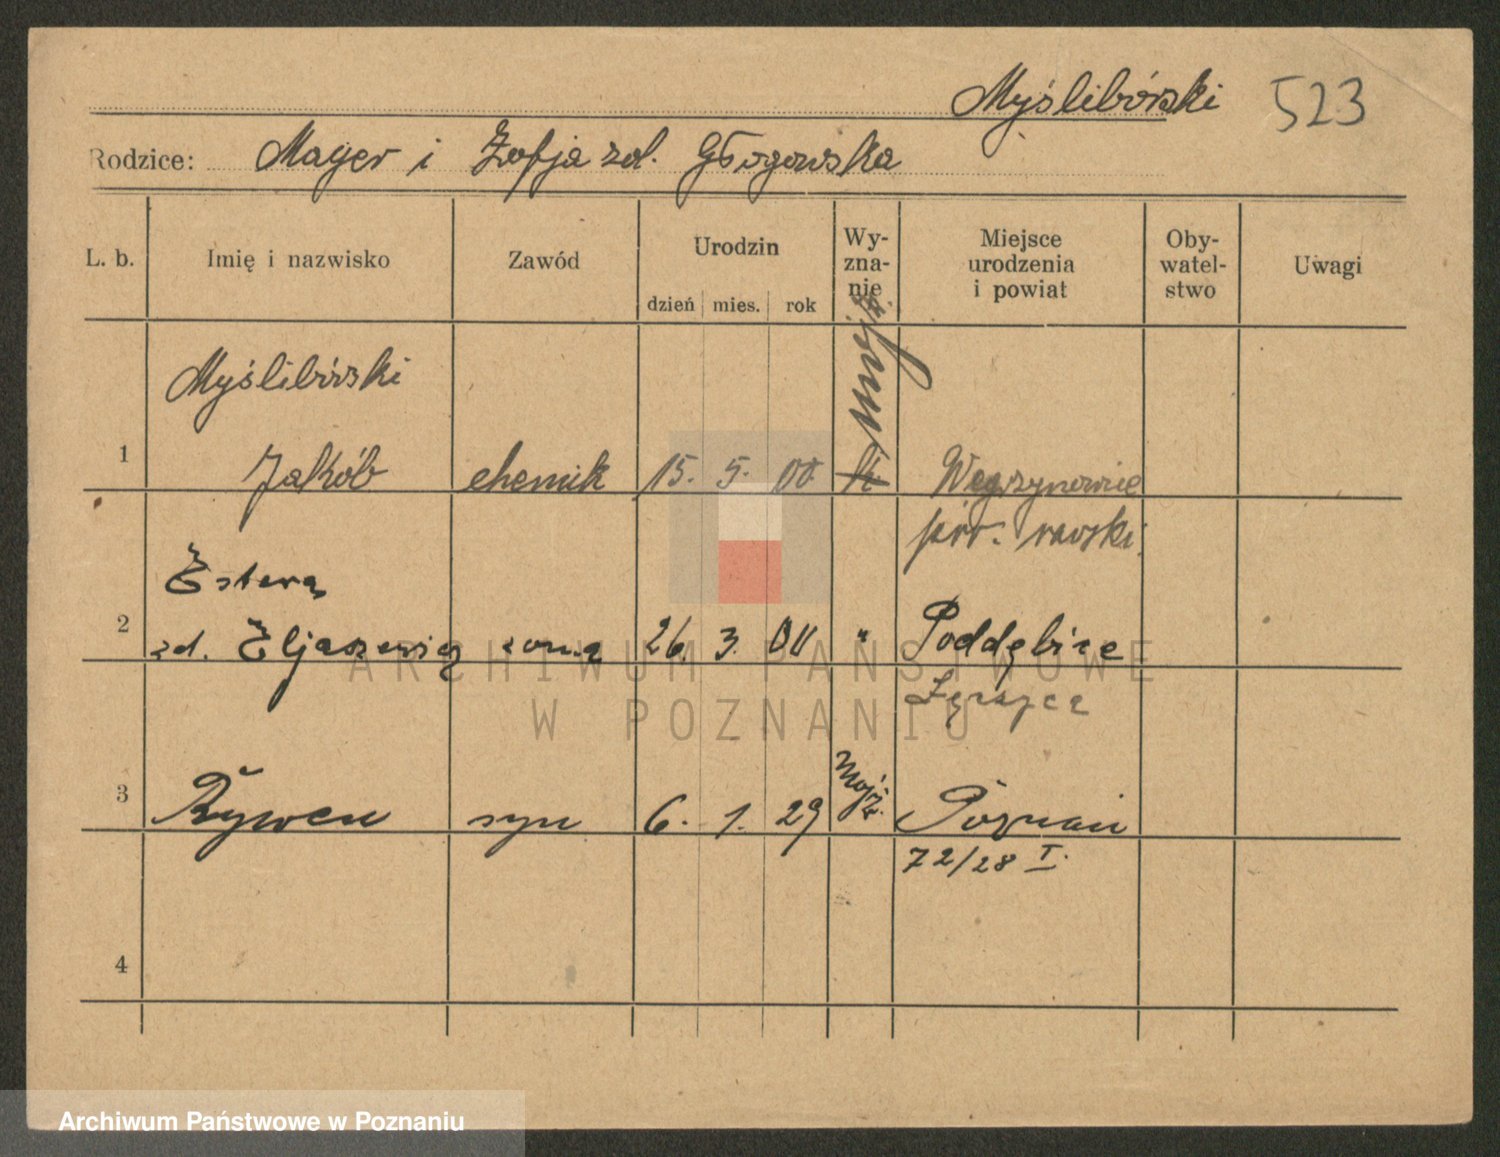 Myślibórski 523
Rodzice: Mayer i Zofja zd. Głogowska
L. b. Imię i nazwisko Zawód Urodzin Wy-zna-nie Miejsce urodzenia i powiat Oby-watel-stwo Uwagi
dzień mies. rok
Myślibórski mojż.
1 Jakób chemik 15. 5. 00
pow. rawski
Estera
2 zd. Eljaszewicz żona 26. 3. 00 " Poddębice
Łęczyca
3 Rywen syn 6. 1. 29 mojż. Poznań
72/28 I.
4
ARCHIWUM PAŃSTWOWE
W POZNANIU
Archiwum Państwowe w Poznaniu